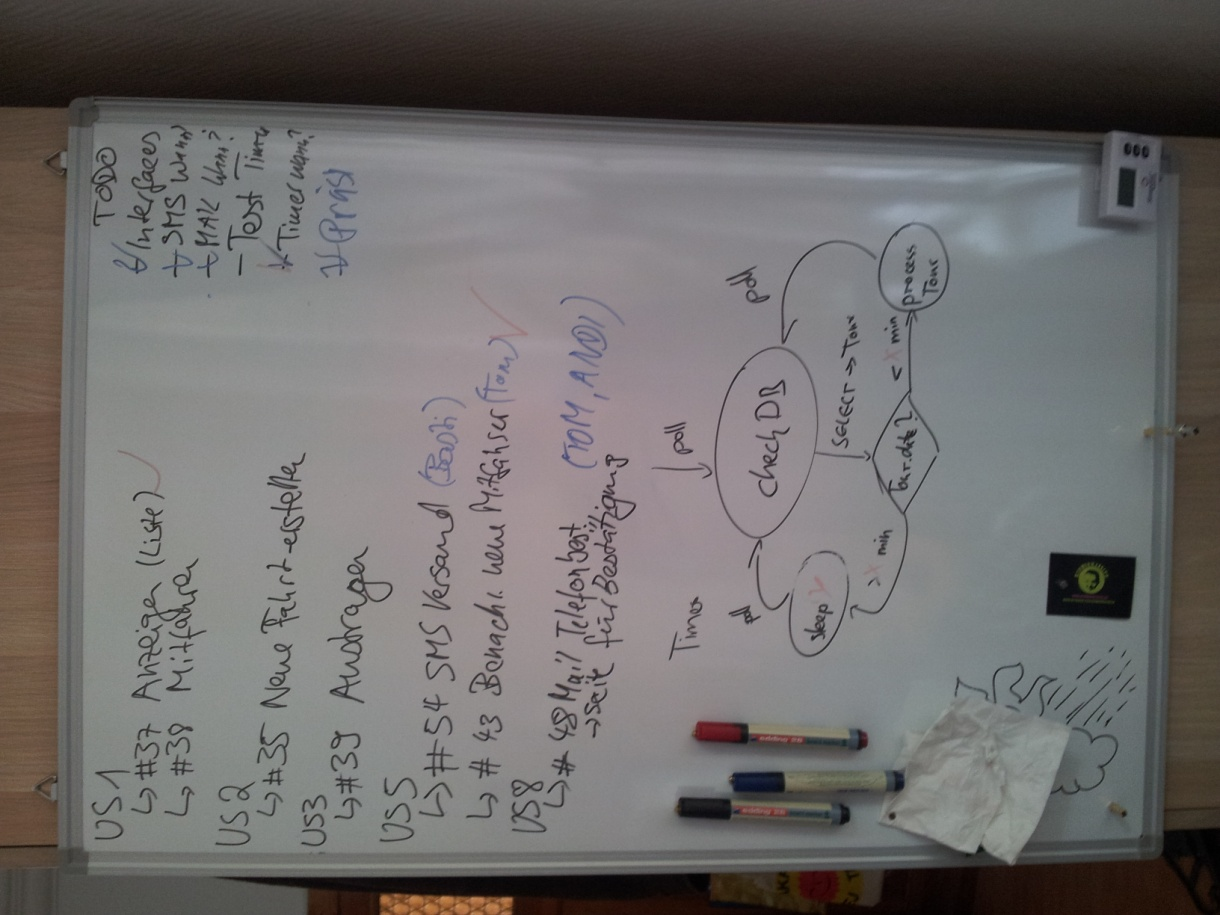 US1
↳ #37 Anzeigen (Liste) ✓
↳ #38 Mitfahren
US2
↳ #35 Neue Fahrt erstellen
US3
↳ #39 Austragen
US5
↳ #54 SMS Versand (Basti)
↳ # 43 Benachr. neue Mitfahrer (Tom) ✓
US8
↳ # 48 Mail Telefonbest
→ Seite für Bestätigung (TOM, ANDI)
TODO
Interfaces
SMS Wann
MAIL Wann?
- Test Timer
Timer wann?
(Präs)
Timer
poll
poll
poll
check DB
sleep
SELECT → Tour
Tour.date?
> X min
< X min
process
Tour
edding